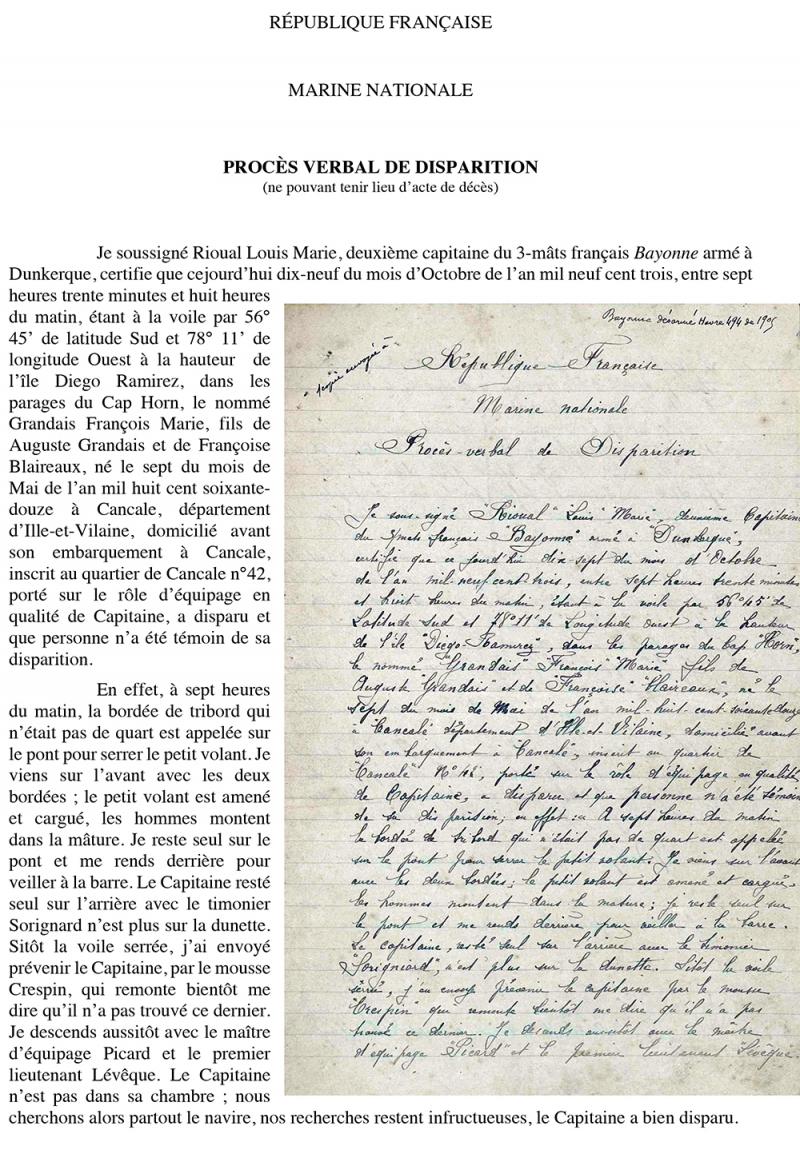 RÉPUBLIQUE FRANÇAISE
MARINE NATIONALE
PROCÈS VERBAL DE DISPARITION
(ne pouvant tenir lieu d’acte de décès)
Je soussigné Rioual Louis Marie, deuxième capitaine du 3-mâts français Bayonne armé à
Dunkerque, certifie que cejourd’hui dix-neuf du mois d’Octobre de l’an mil neuf cent trois, entre sept
heures trente minutes et huit heures
du matin, étant à la voile par 56°
45’ de latitude Sud et 78° 11’ de
longitude Ouest à la hauteur de
l’île Diego Ramirez, dans les
parages du Cap Horn, le nommé
Grandais François Marie, fils de
Auguste Grandais et de Françoise
Blaireaux, né le sept du mois de
Mai de l’an mil huit cent soixante-
douze à Cancale, département
d’Ille-et-Vilaine, domicilié avant
son embarquement à Cancale,
inscrit au quartier de Cancale n°42,
porté sur le rôle d’équipage en
qualité de Capitaine, a disparu et
que personne n’a été témoin de sa
disparition.
En effet, à sept heures
du matin, la bordée de tribord qui
n’était pas de quart est appelée sur
le pont pour serrer le petit volant. Je
viens sur l’avant avec les deux
bordées ; le petit volant est amené
et cargué, les hommes montent
dans la mâture. Je reste seul sur le
pont et me rends derrière pour
veiller à la barre. Le Capitaine resté
seul sur l’arrière avec le timonier
Sorignard n’est plus sur la dunette.
Sitôt la voile serrée, j’ai envoyé
prévenir le Capitaine, par le mousse
Crespin, qui remonte bientôt me
dire qu’il n’a pas trouvé ce dernier.
Je descends aussitôt avec le maître
d’équipage Picard et le premier
lieutenant Lévêque. Le Capitaine
n’est pas dans sa chambre ; nous
cherchons alors partout le navire, nos recherches restent infructueuses, le Capitaine a bien disparu.
Bayonne désarmé Havre 494 de 1905
République Française
Marine nationale
Procès-verbal de Disparition
Je sous-signé "Rioual" "Louis" "Marie", deuxième Capitaine
du 3 mâts français "Bayonne" armé à "Dunkerque",
certifie que ce jourd'hui dix-sept du mois d'Octobre
de l'an mil-neuf cent trois, entre sept heures trente minutes
et huit heures du matin, étant à la voile par 56°45' de
Latitude Sud et 78°11' de Longitude ouest à la hauteur
de l'île "Diego-Ramirez", dans les parages du Cap "Horn",
le nommé "Grandais" "François" "Marie" fils de
Auguste "Grandais" et de "Françoise" né le
sept du mois de Mai de l'an mil-huit-cent-soixante-douze
à "Cancale" département d'Ille-et-Vilaine, domicilié avant
son embarquement à Cancale, inscrit au quartier de
"Cancale" N° 42, porté sur le rôle d'équipage en qualité
de Capitaine, a disparu et que personne n'a été témoin
de sa disparition; en effet : A sept heures du matin
la bordée de tribord qui n'était pas de quart est appelée
sur le pont pour serrer le petit volant. Je viens sur l'avant
avec les deux bordées; le petit volant est amené et cargué,
les hommes montent dans la mature; je reste seul sur
le pont et me rends derrière pour veiller à la barre.
Le capitaine, resté seul sur l'arrière avec le timonier
"Sorigniard", n'est plus sur la dunette. Sitôt la voile
serrée, j'ai envoyé prévenir le capitaine par le mousse
"Crespin" qui remonte bientôt me dire qu'il n'a pas
trouvé ce dernier. Je descends aussitôt avec le maître
d'équipage "Picard" et le premier lieutenant Lévêque.